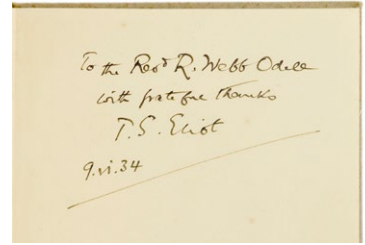 To the Revd R. Webb Odell
with grateful thanks
T. S. Eliot
9.vi.34